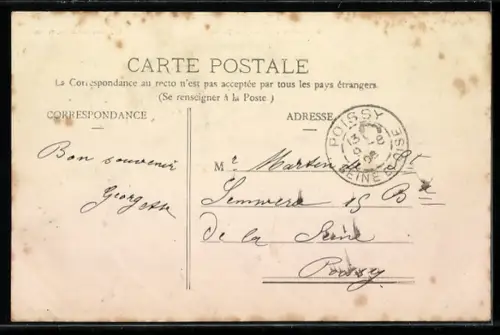 CARTE POSTALE
La Correspondance au recto n'est pas acceptée par tous les pays étrangers.
(Se renseigner à la Poste.)
CORRESPONDANCE
ADRESSE
Bon souvenir
Georgette
POISSY
SEINE & OISE
Mr Martin de St
15 Bd
de la Seine
Poissy